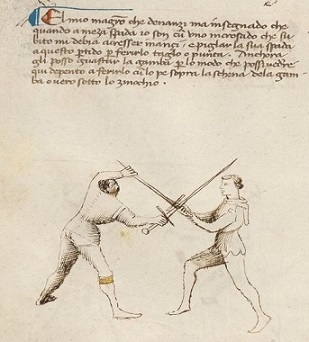 El mio magro che denanzi ma insegnado che
quando a meza spada io son cum uno incrosado che su
bito mi debia acresser inançi, e piglar la sua spada
a questo partido per ferirlo taglo o punta. Anchora
gli posso guastar la gamba per lo modo che possi vedere
qui depento a ferirlo cum lo pe sopra la schena dela gam
ba overo sotto lo zinochio.